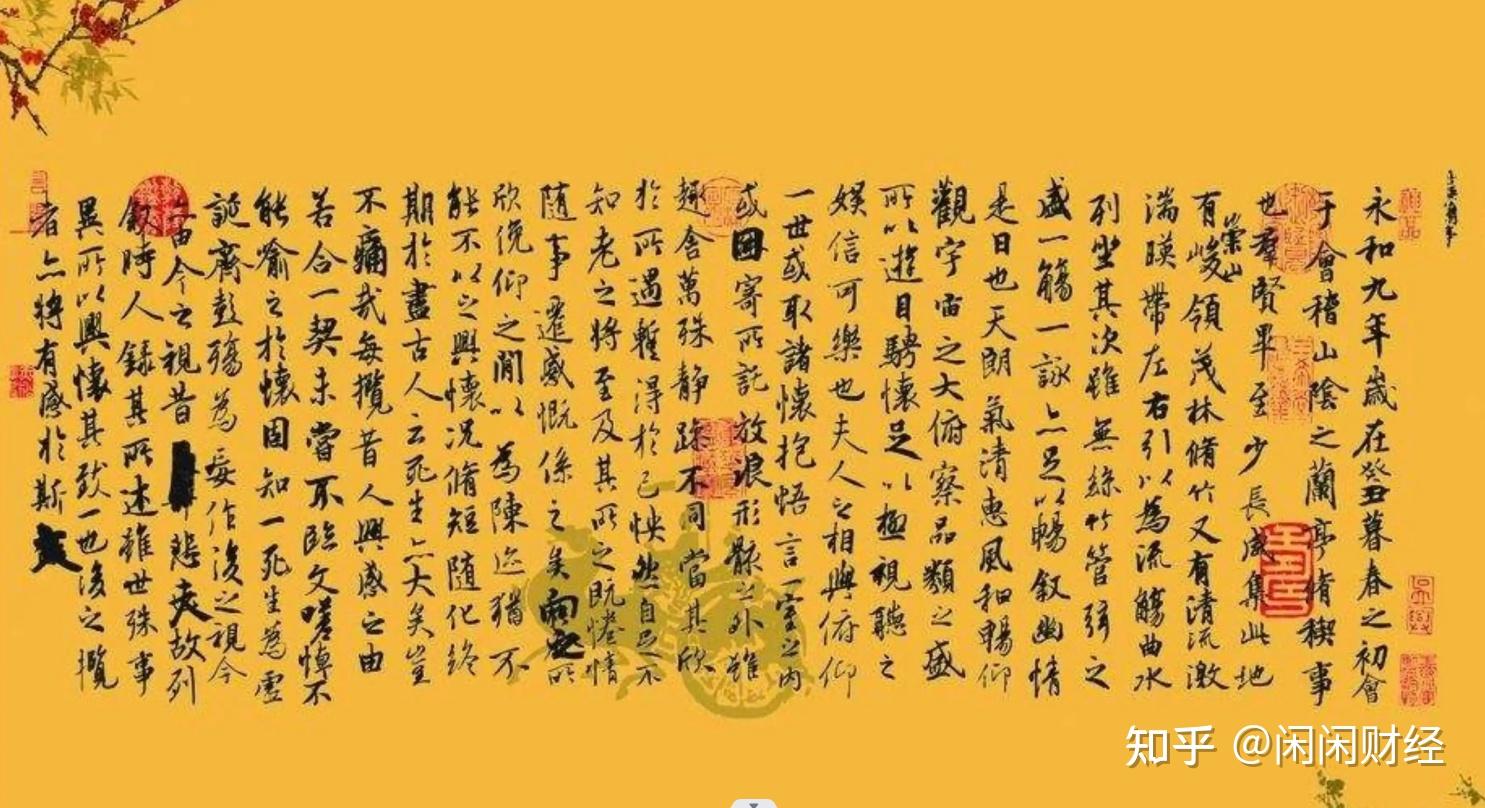 永和九年歲在癸丑暮春之初會
于會稽山陰之蘭亭脩禊事
也羣賢畢至少長咸集此地
有崇山峻領茂林脩竹又有清流激
湍暎帶左右引以為流觴曲水
列坐其次雖無絲竹管弦之
盛一觴一詠亦足以暢敘幽情
是日也天朗氣清惠風和暢仰
觀宇宙之大俯察品類之盛
所以遊目騁懷足以極視聽之
娛信可樂也夫人之相與俯仰
一世或取諸懷抱悟言一室之內
或因寄所託放浪形骸之外雖
趣舍萬殊靜躁不同當其欣
於所遇暫得於己怏然自足不
知老之將至及其所之既惓情
隨事遷感慨係之矣向之所
欣俛仰之閒以為陳迹猶不
能不以之興懷況脩短隨化終
期於盡古人云死生亦大矣豈
不痛哉每攬昔人興感之由
若合一契未嘗不臨文嗟悼不
能喻之於懷固知一死生為虛
誕齊彭殤為妄作後之視今
亦由今之視昔悲夫故列
敘時人錄其所述雖世殊事
異所以興懷其致一也後之攬
者亦將有感於斯文
知乎 @闲闲财经